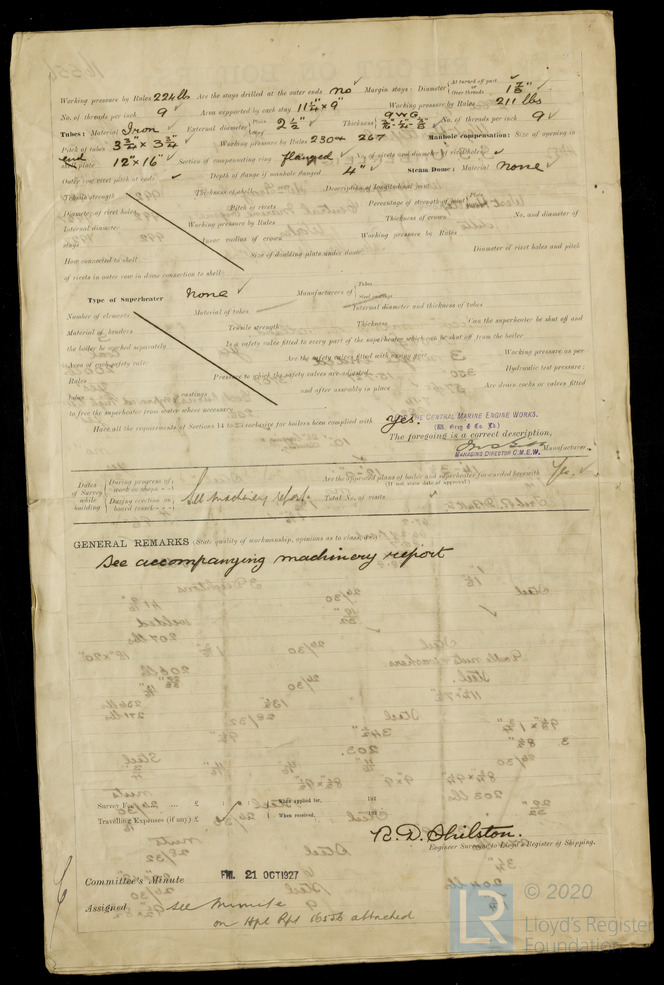 Working pressure by Rules 224 lbs Are the stays drilled at the outer ends no Margin stays: Diameter At turned off part, or Over threads 1 7/8"
No. of threads per inch 9 Area supported by each stay 11 1/4" x 9" Working pressure by Rules 211 lbs
Tubes: Material Iron External diameter Plain 2 1/2" Thickness 9 W G No. of threads per inch 9
Pitch of tubes 3 3/4" x 3 3/4" Working pressure by Rules 230 + 267 Manhole compensation: Size of opening in
end shell plate 12" x 16" Section of compensating ring flanged No. of rivets and diameter of rivet holes
Outer row rivet pitch at ends Depth of flange if manhole flanged 4" Steam Dome: Material none
Tensile strength Thickness of shell Description of longitudinal joint
Diameter of rivet holes Pitch of rivets Percentage of strength of joint Plate
Internal diameter Working pressure by Rules Thickness of crown No. and diameter of
stays Inner radius of crown Working pressure by Rules
How connected to shell Size of doubling plate under dome Diameter of rivet holes and pitch
of rivets in outer row in dome connection to shell
Type of Superheater none Manufacturers of Tubes Steel castings
Number of elements Material of tubes Internal diameter and thickness of tubes
Material of headers Tensile strength Thickness Can the superheater be shut off and
the boiler be worked separately Is a safety valve fitted to every part of the superheater which can be shut off from the boiler
Area of each safety valve Are the safety valves fitted with easing gear Working pressure as per
Rules Pressure to which the safety valves are adjusted Hydraulic test pressure:
tubes castings and after assembly in place Are drain cocks or valves fitted
to free the superheater from water where necessary
Have all the requirements of Sections 14 to 23 inclusive for boilers been complied with yes.
THE CENTRAL MARINE ENGINE WORKS.
(Wm. Gray & Co. Ld.)
The foregoing is a correct description,
Manufacturer.
MANAGING DIRECTOR C.M.E.W.
Dates of Survey while building During progress of work in shops - - During erection on board vessel - - - See machinery report. Are the approved plans of boiler and superheater forwarded herewith Yes.
(If not state date of approval.)
Total No. of visits
GENERAL REMARKS (State quality of workmanship, opinions as to class, &c.)
See accompanying machinery report
Survey Fee ... ... £ : : When applied for, 192
Travelling Expenses (if any) £ : : When received, 192
B. D. Shilston.
Engineer Surveyor to Lloyd's Register of Shipping.
Committee's Minute FRI. 21 OCT 1927
Assigned See Minute
on Hpl Rpt 16556 attached
LR © 2020
Lloyd's Register
Foundation